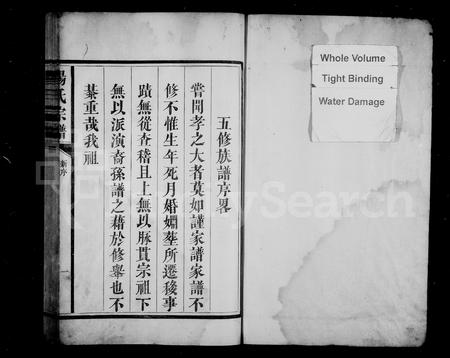 五修族譜序畧
嘗聞孝之大者莫如謹家譜家譜不
修不惟生年死月婚姻塟所遷移事
蹟無從查稽且上無以脉貫宗祖下
無以派演裔孫譜之藉於修舉也不
綦重哉我祖
楊氏宗譜
新序
一
Whole Volume
Tight Binding
Water Damage
FamilySearch